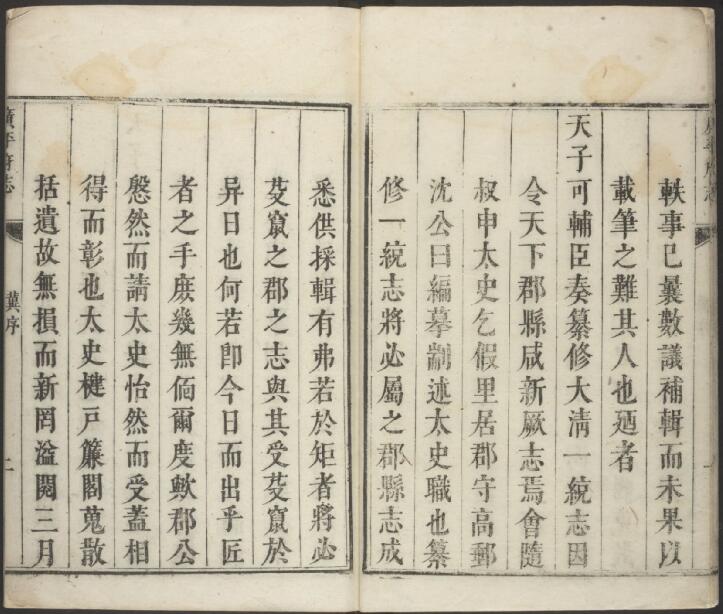 軼事已曩數議補輯而未果以
載筆之難其人也廼者
天子可輔臣奏纂修大清一統志因
令天下郡縣咸新厥志焉會隨
叔申太史乞假里居郡守高郵
沈公曰編摹劂述太史職也纂
修一統志將必屬之郡縣志成
悉供採輯有弗若於矩者將必
芟竄之郡之志與其受芟竄於
异日也何若卽今日而出乎匠
者之手庻幾無偭爾度歟郡公
慇然而請太史怡然而受蓋相
得而彰也太史楗戸簾閣蒐散
括遺故無損而新罔溢閱三月
廣平府志
冀序
二